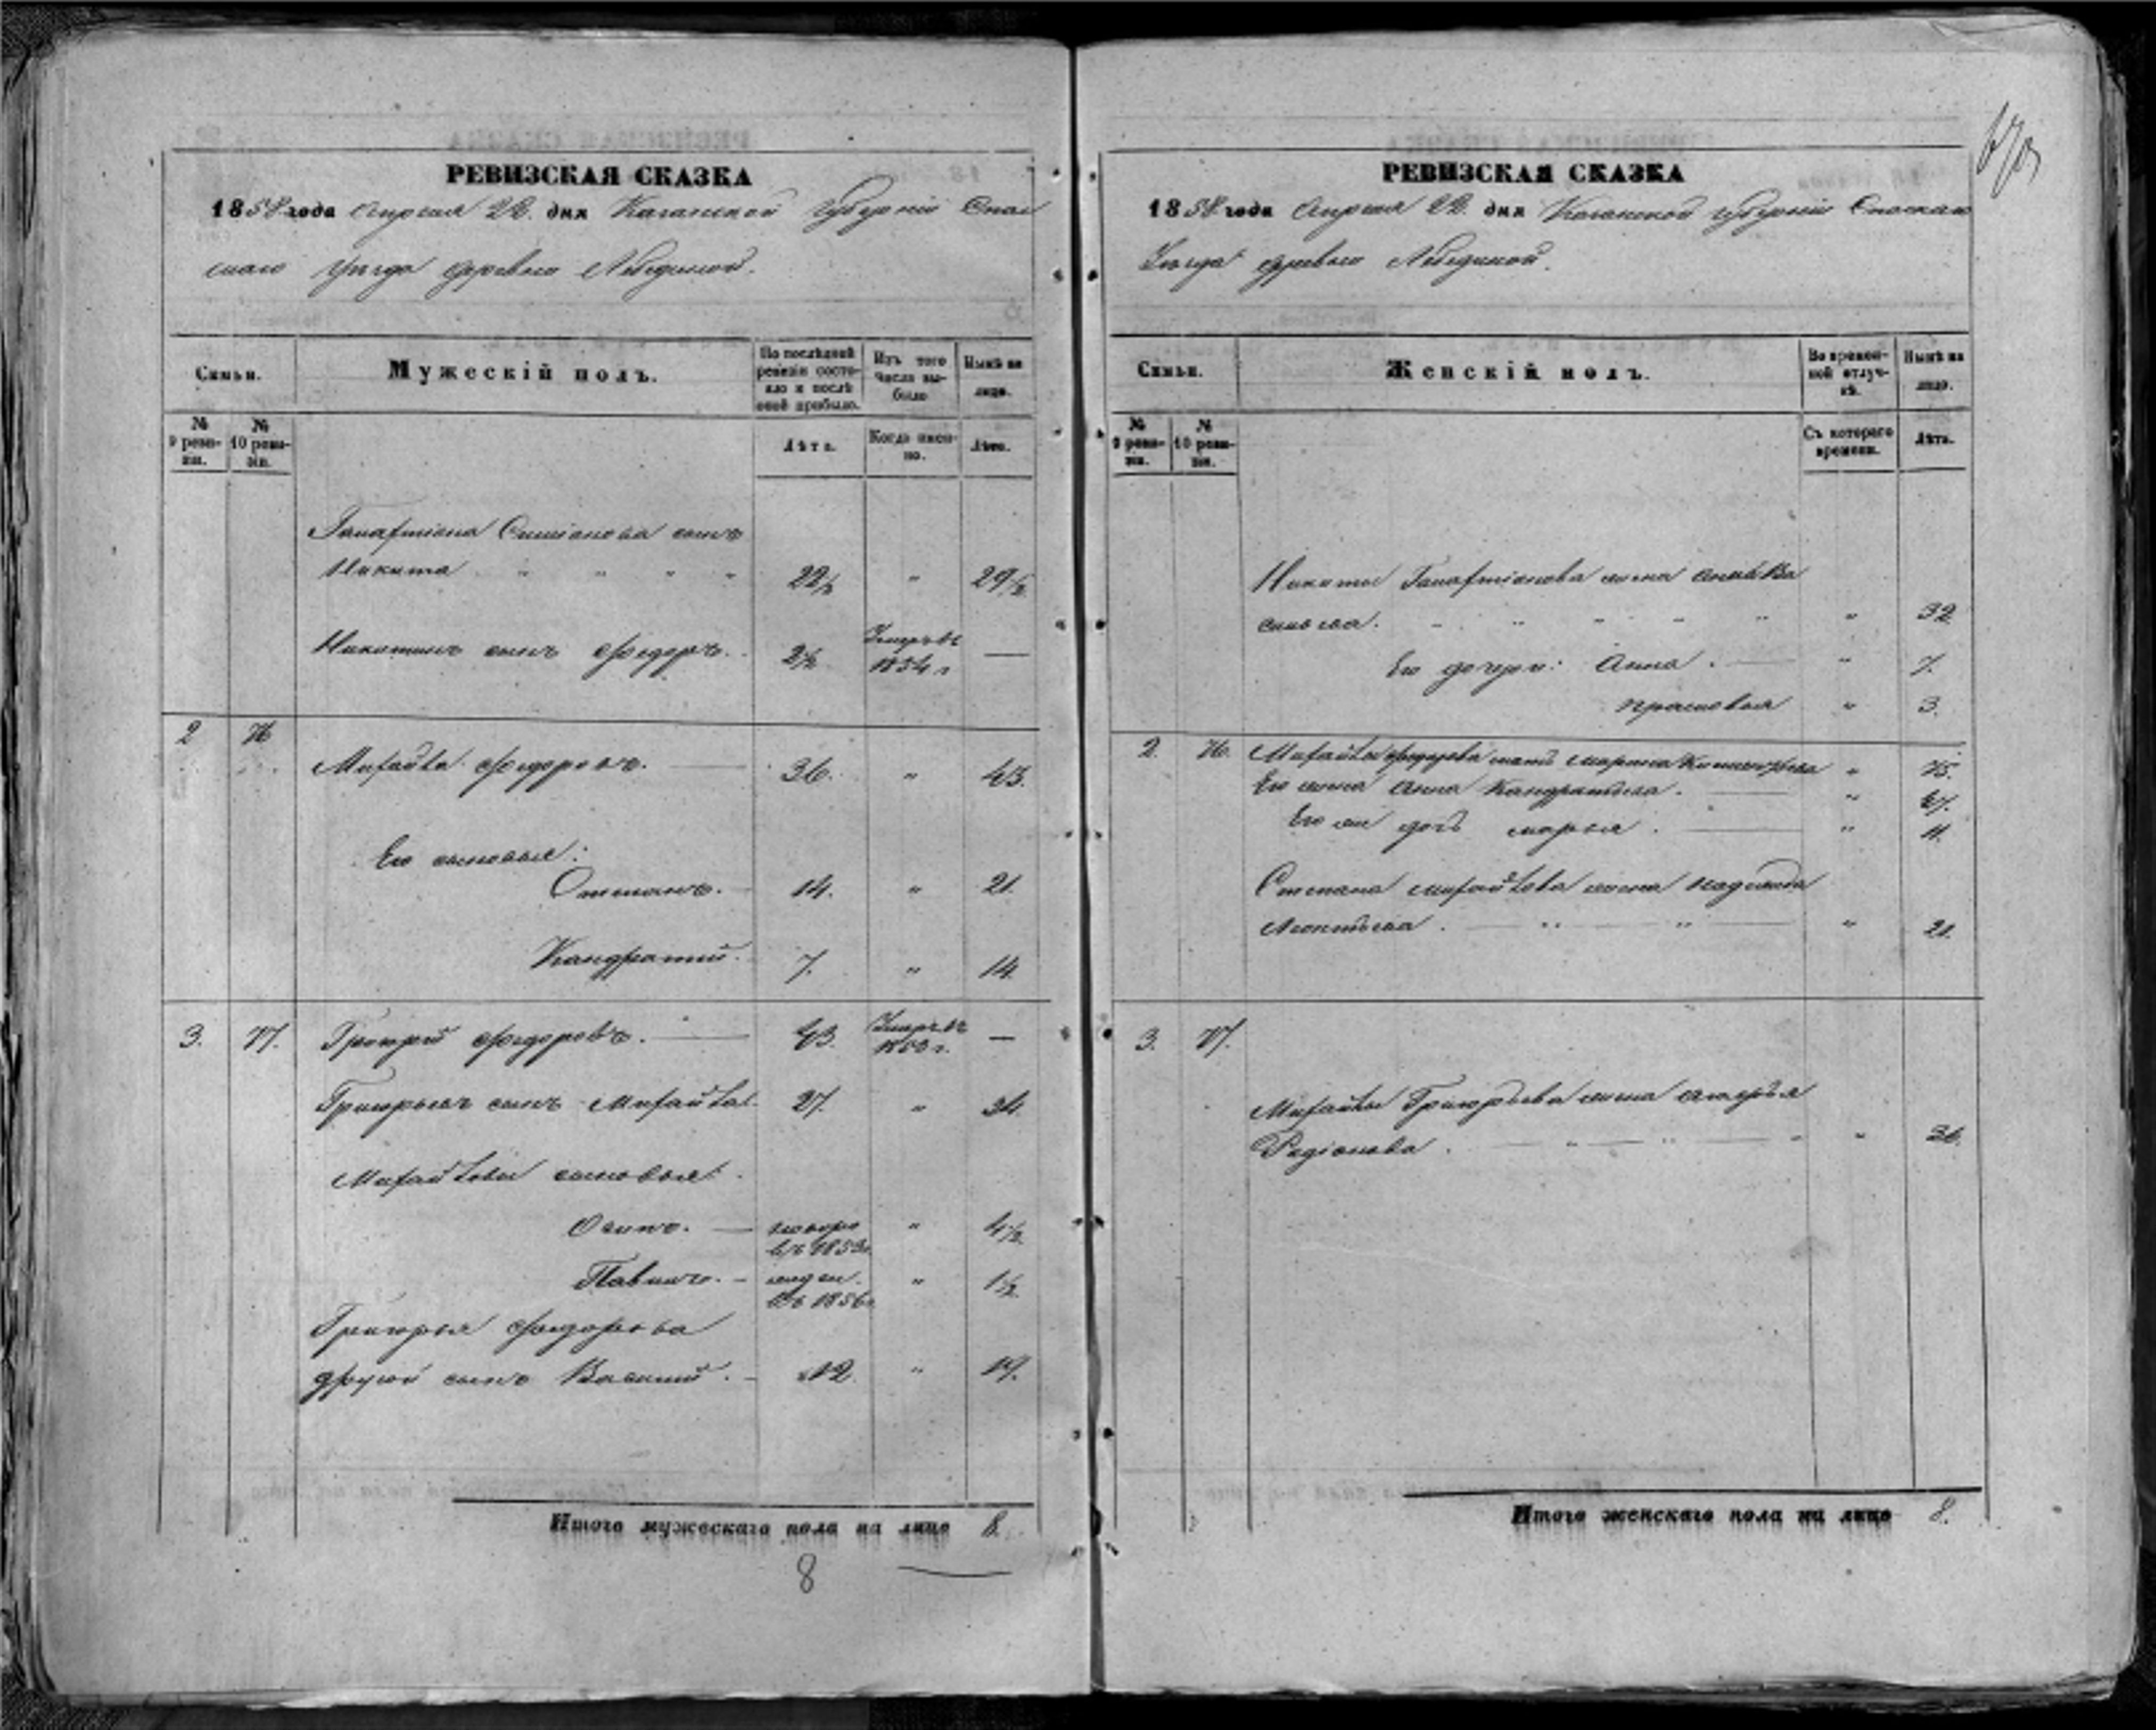 РЕВИЗСКАЯ СКАЗКА
1858 года Апреля 22 дня Казанской губерніи Спас
скаго уезда деревни Лебединой.
Семьи.
Мужескій полъ.
По послѣдней ревизіи состояло и послѣ оной прибыло.
Изъ того числа выбыло
Нынѣ на лицо.
№ 9 ревизіи.
№ 10 ревизіи.
Лѣта.
Когда именно.
Лѣта.
сынъ
Никита " " " " 22½ " 29½
Никитинъ сынъ Федоръ. 2½ Умеръ въ 1854 г —
2 76
Михайла Федоровъ. 36. " 43.
Его сыновья:
Степанъ. 14. " 21.
Кандратий. 7. " 14.
3. 77. Григорій Федоровъ. 43. Умеръ въ —
Григорьевъ сынъ Михайла. 27. " 34.
Михайловы сыновья:
Осипъ. въ 1853г. " 4½.
въ 1856г. " 1½.
Григорья Федорова
другой сынъ Василий. 12. " 19.
Итого мужескаго пола на лицо 8.
8
РЕВИЗСКАЯ СКАЗКА
1858 года Апреля 22 дня Казанской губерніи Спаскаго
Уезда деревни Лебединой.
Семьи.
Женскій полъ.
Во временной отлучкѣ.
Нынѣ на лицо.
№ 9 ревизіи.
№ 10 ревизіи.
Съ котораго времени.
Лѣта.
Никиты жена Ва
сильева. " " " " " " 32
Его дочери: Анна. " 7.
Прасковья " 3.
2. 76. Михайлы Федорова мать Марина " 75.
Его жена Анна Кандратьева. " 47.
Его же дочь Марья. " 11.
Степана Михайлова жена Надежда
Леонтьева. " " " 21.
3. 77.
Михайлы Григорьева жена
Радіонова. " " " " 36.
Итого женскаго пола на лицо 8.